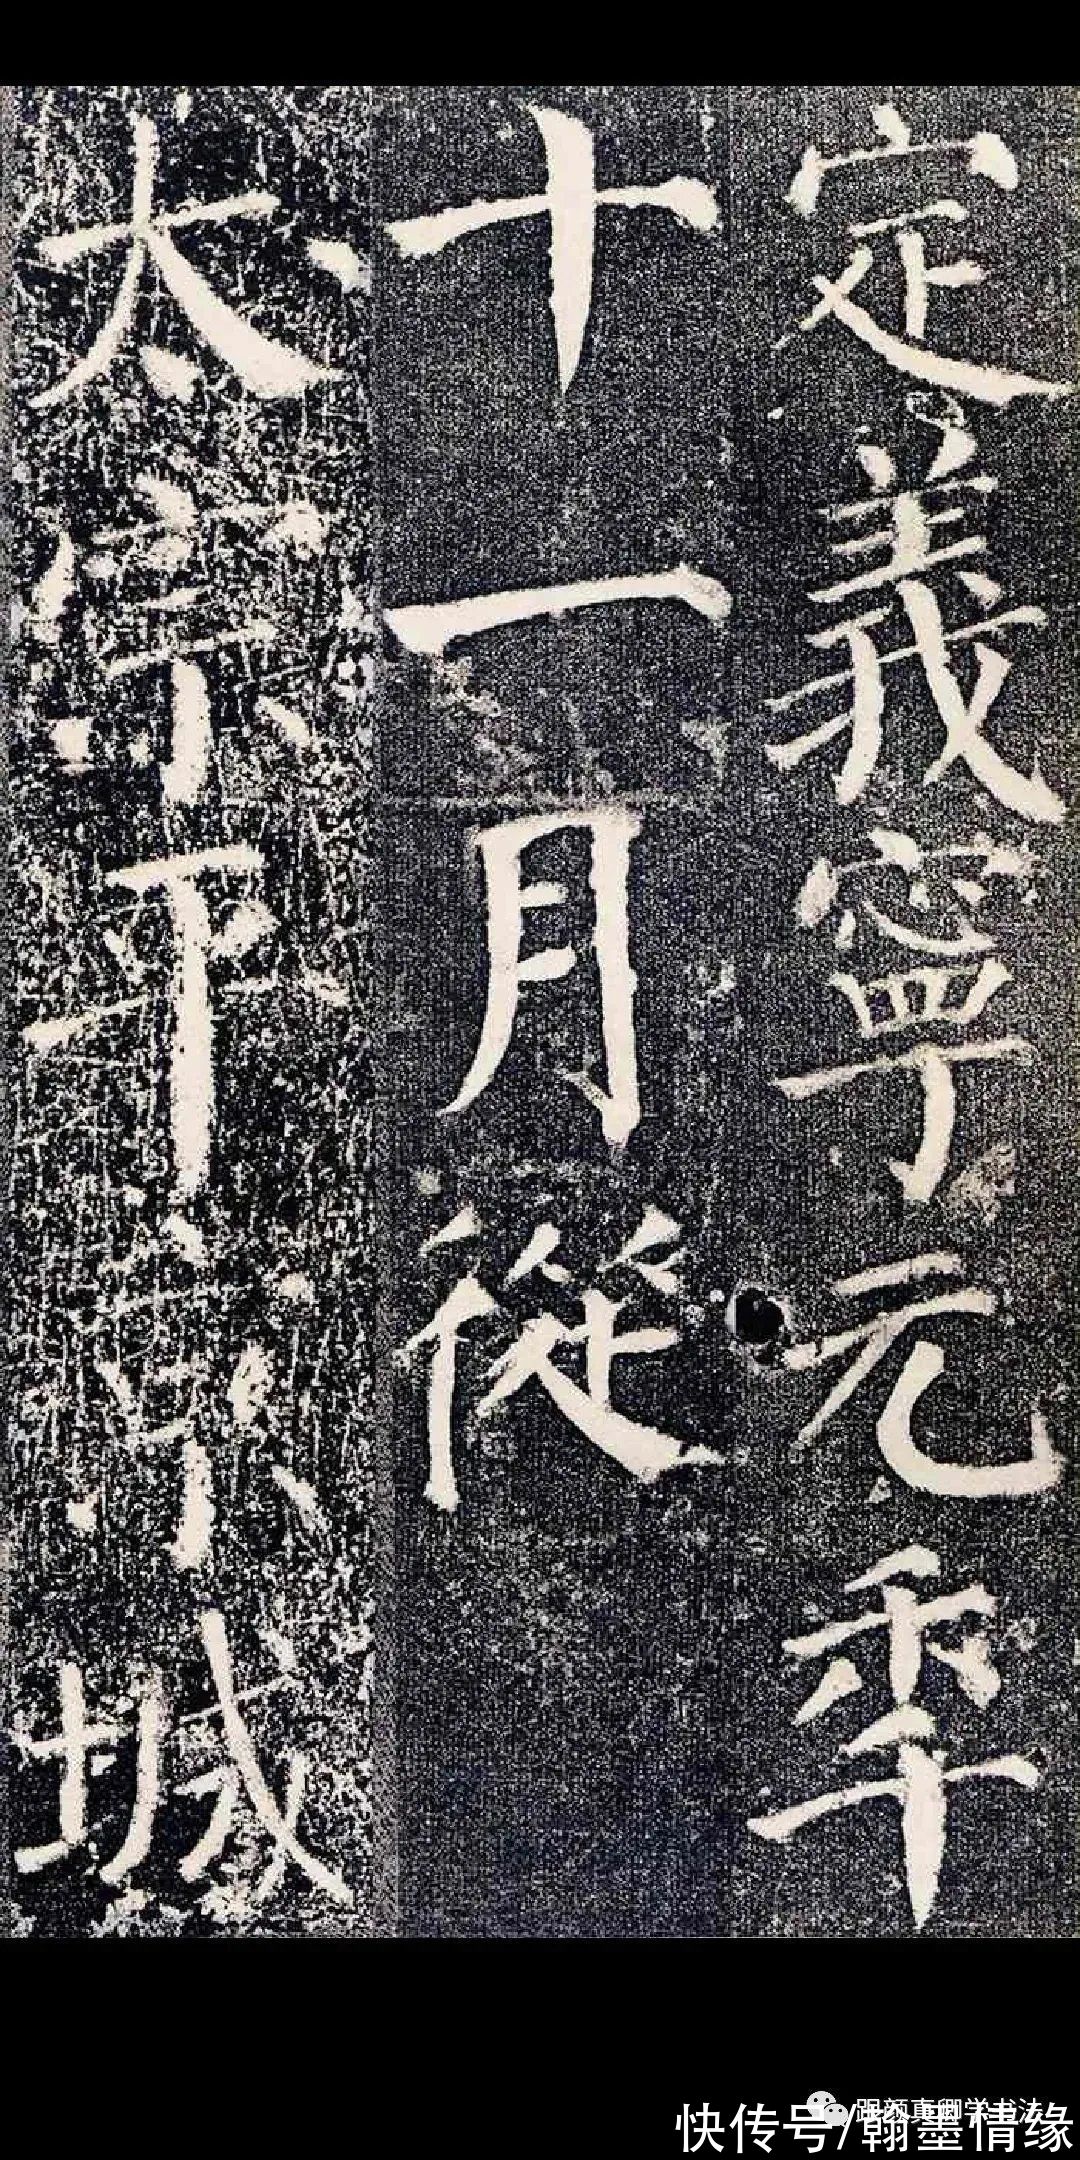 定義寧元年
十一月從
太宗平京城
跟颜真卿学书法
快传号/翰墨情缘